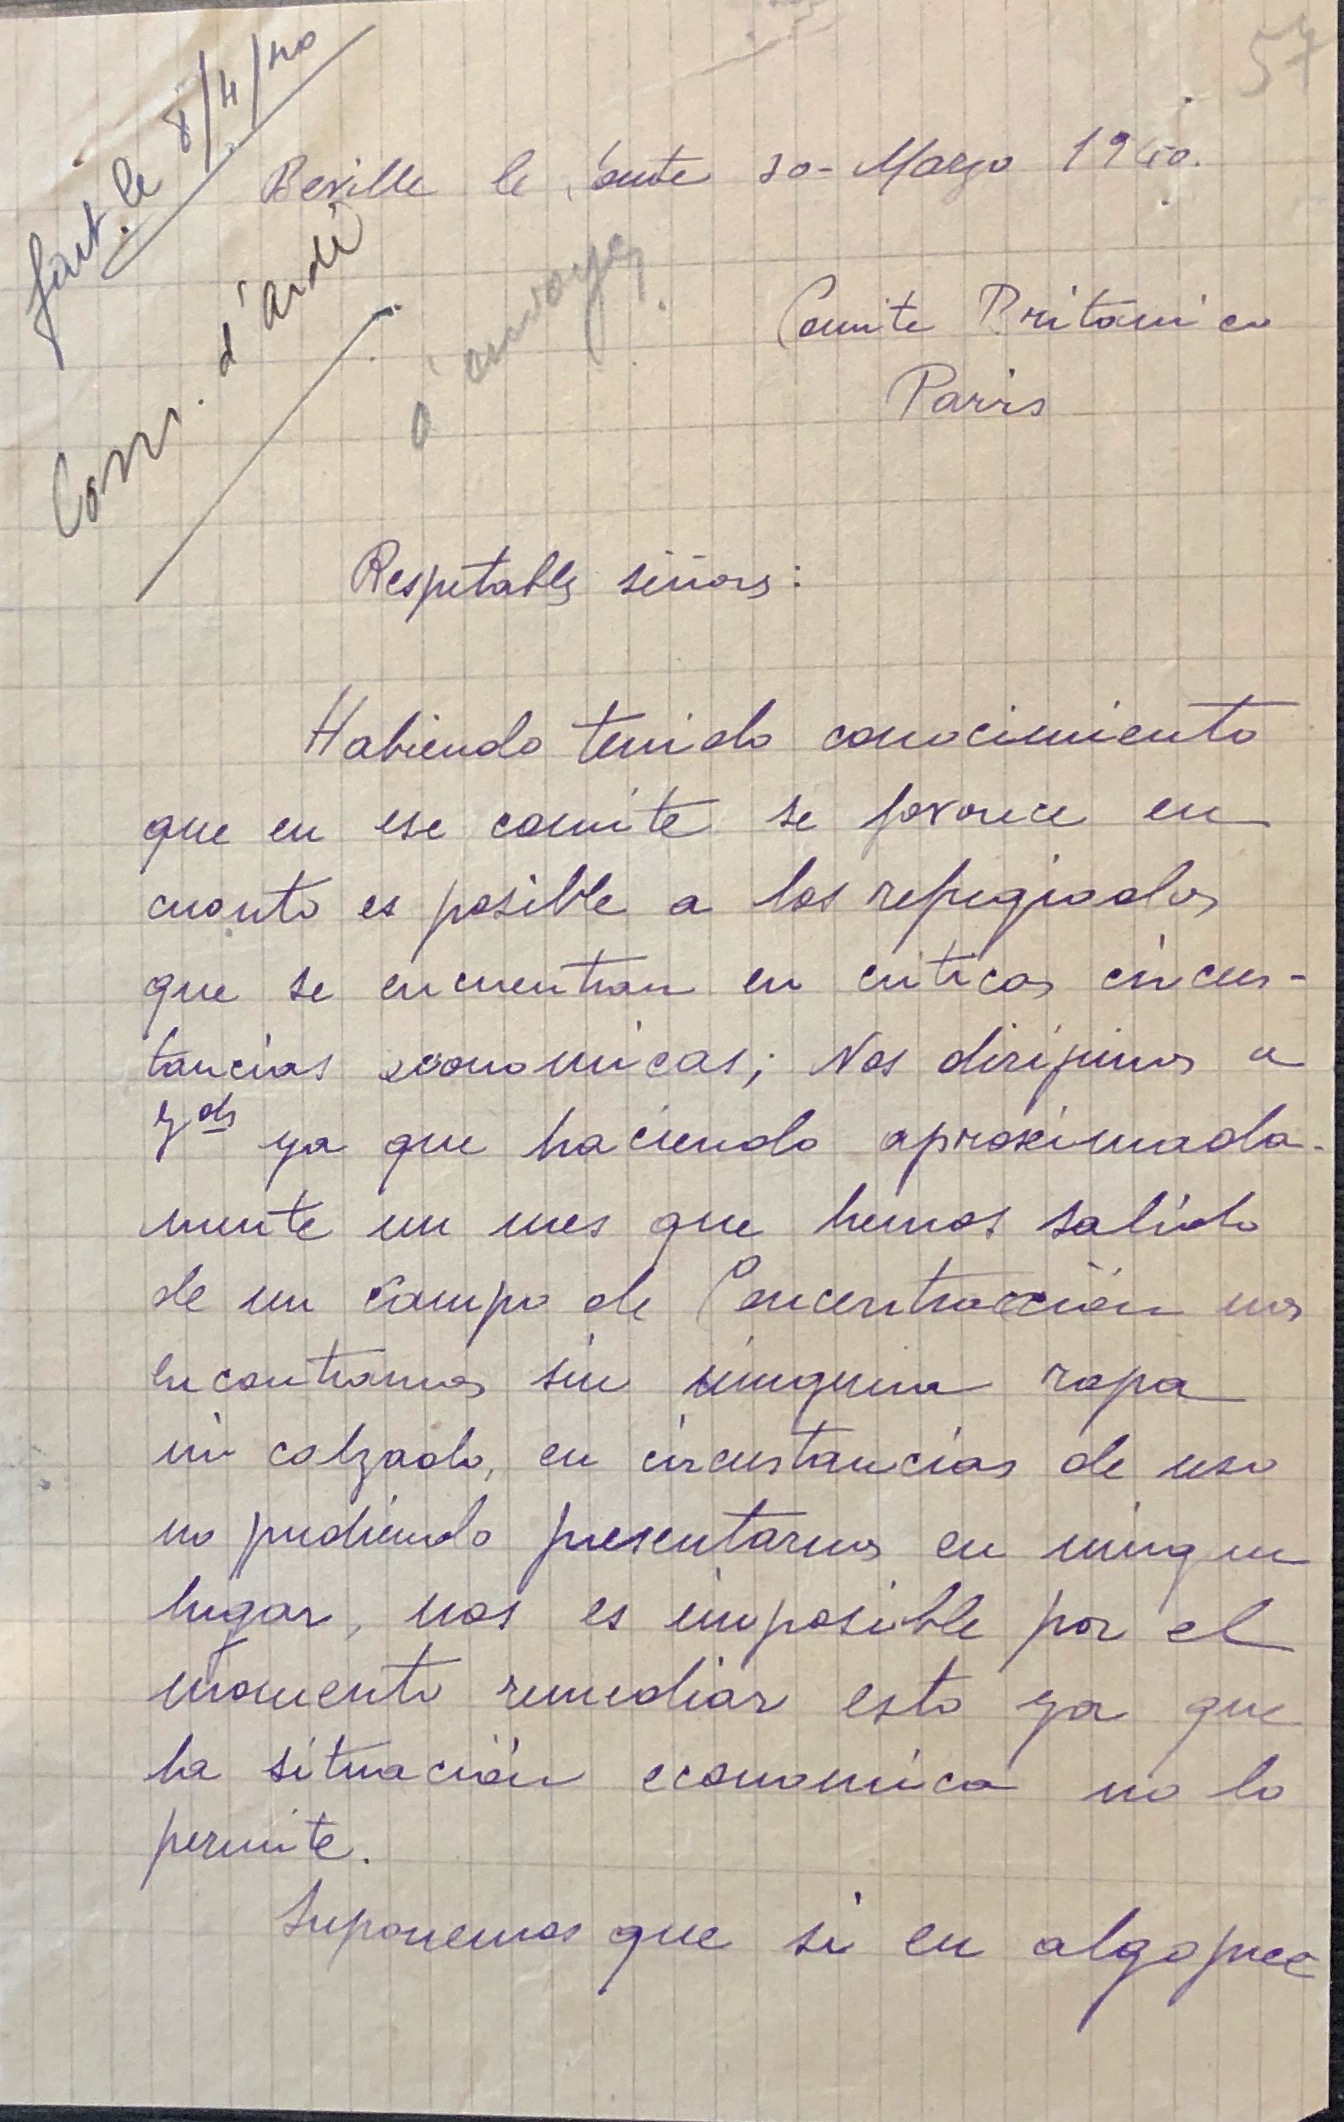 57
fait le 8/4/40
Beville le Comte 30 - Marzo 1940.
Corr. d'ardé
à envoyer
Comite Britanico
Paris
Respetables señores:
Habiendo tenido conocimiento
que en ese comite se favorece en
cuanto es posible a los refugiados
que se encuentran en criticas circus-
tancias economicas; Nos dirijimos a
Vds ya que haciendo aproximada-
mente un mes que hemos salido
de un Campo de Concentración nos
encontramos sin ninguna ropa
ni calzado, en circustancias de uso
no pudiendo presentarnos en ningun
lugar, nos es imposible por el
momento remediar esto ya que
la situación economica no lo
permite.
Suponemos que si en algo pue